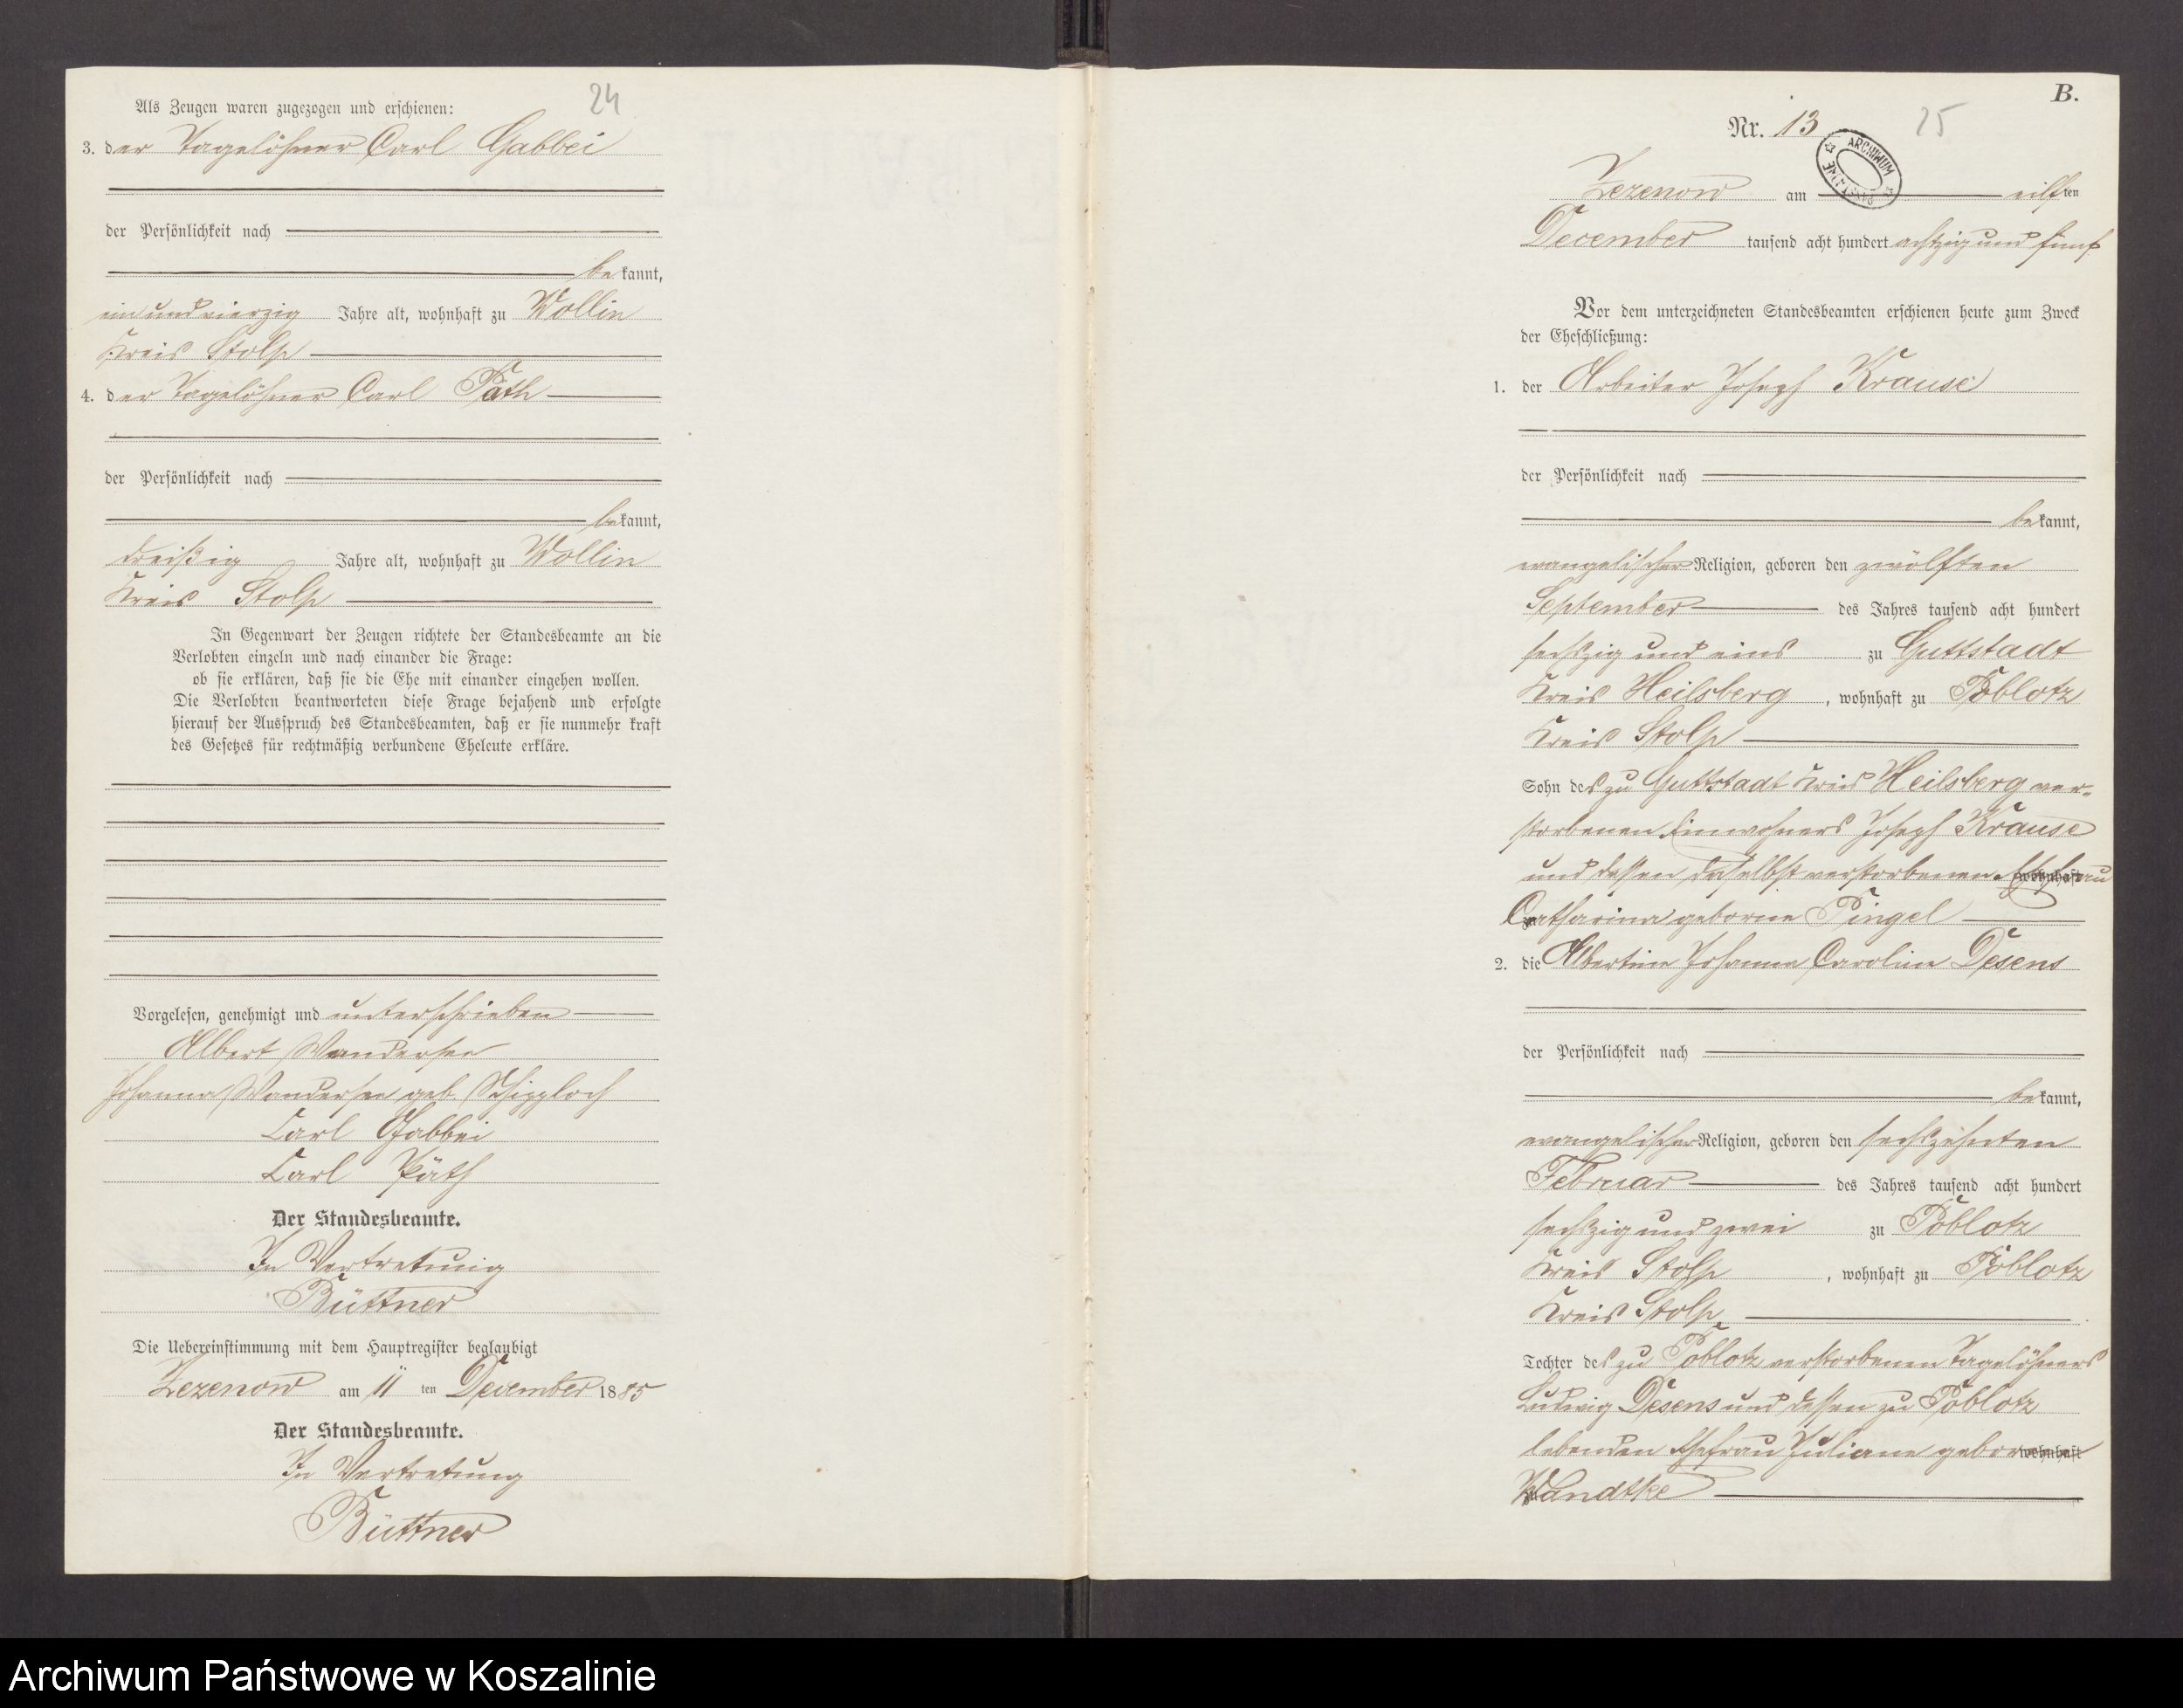 24
Als Zeugen waren zugezogen und erschienen:
3. der Tagelöhner Carl Gabbei
der Persönlichkeit nach
bekannt,
ein und vierzig Jahre alt, wohnhaft zu Wollin
Kreis Stolp
4. der Tagelöhner Carl Päth
der Persönlichkeit nach
bekannt,
dreißig Jahre alt, wohnhaft zu Wollin
Kreis Stolp
In Gegenwart der Zeugen richtete der Standesbeamte an die
Verlobten einzeln und nach einander die Frage:
ob sie erklären, daß sie die Ehe mit einander eingehen wollen.
Die Verlobten beantworteten diese Frage bejahend und erfolgte
hierauf der Ausspruch des Standesbeamten, daß er sie nunmehr kraft
des Gesetzes für rechtmäßig verbundene Eheleute erkläre.
Vorgelesen, genehmigt und unterschrieben
Albert Wandersee
Johanna Wandersee geb. Schipploch
Carl Gabbei
Carl Päth
Der Standesbeamte.
In Vertretung
Büttner
Die Uebereinstimmung mit dem Hauptregister beglaubigt
Zezenow am 11 ten December 1885
Der Standesbeamte.
In Vertretung
Büttner
B.
Nr. 13
25
ARCHIWUM
Zezenow am eilften
December tausend acht hundert achtzig und fünf
Vor dem unterzeichneten Standesbeamten erschienen heute zum Zweck
der Eheschließung:
1. der Arbeiter Joseph Krause
der Persönlichkeit nach
bekannt,
evangelischer Religion, geboren den zwölften
September des Jahres tausend acht hundert
sechszig und eins zu Guttstadt
Kreis Heilsberg, wohnhaft zu Poblotz
Kreis Stolp
Sohn des zu Guttstadt Kreis Heilsberg ver-
storbenen Einwohners Joseph Krause
und dessen daselbst verstorbenen Ehefrau wohnhaft
zu Catharina geborne Pingel
2. die Albertine Johanna Caroline Desens
der Persönlichkeit nach
bekannt,
evangelischer Religion, geboren den sechszehnten
Februar des Jahres tausend acht hundert
sechszig und zwei zu Poblotz
Kreis Stolp, wohnhaft zu Poblotz
Kreis Stolp
Tochter des zu Poblotz verstorbenen Tagelöhners
Ludwig Desens und dessen zu Poblotz
lebenden Ehefrau Juliane geborne wohnhaft
zu Wandtke
Archiwum Państwowe w Koszalinie